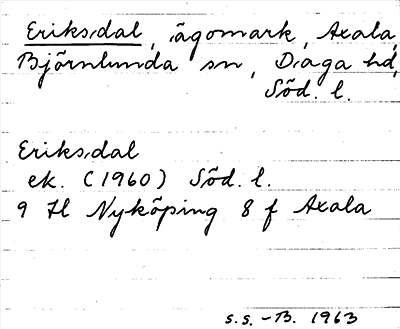 Eriksdal, ägomark, Axala,
Björnlunda sn, Daga hd,
Söd. l.
Eriksdal
ek. (1960) Söd. l.
9 H Nyköping 8 f Axala
s.s. - B. 1963